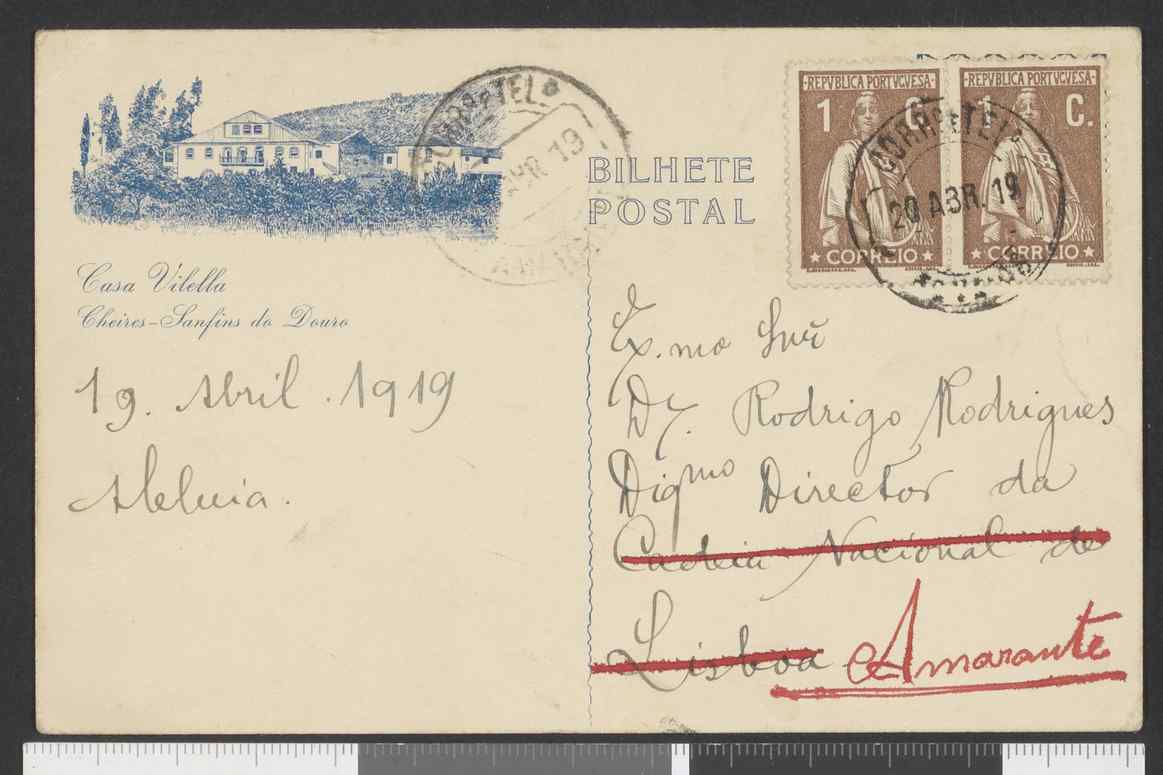 CORR. E TEL.
ABR. 19
BILHETE
POSTAL
REPVBLICA PORTVGVESA
1 C.
CORREIO
REPVBLICA PORTVGVESA
1 C.
CORREIO
CORR. E TEL.
20 ABR. 19
Casa Vilella
Cheires-Sanfins do Douro
19. Abril. 1919
Aleluia.
Ex.mo Snr
Dr. Rodrigo Rodrigues
Digmo Director da
Cadeia Nacional de
Lisboa Amarante